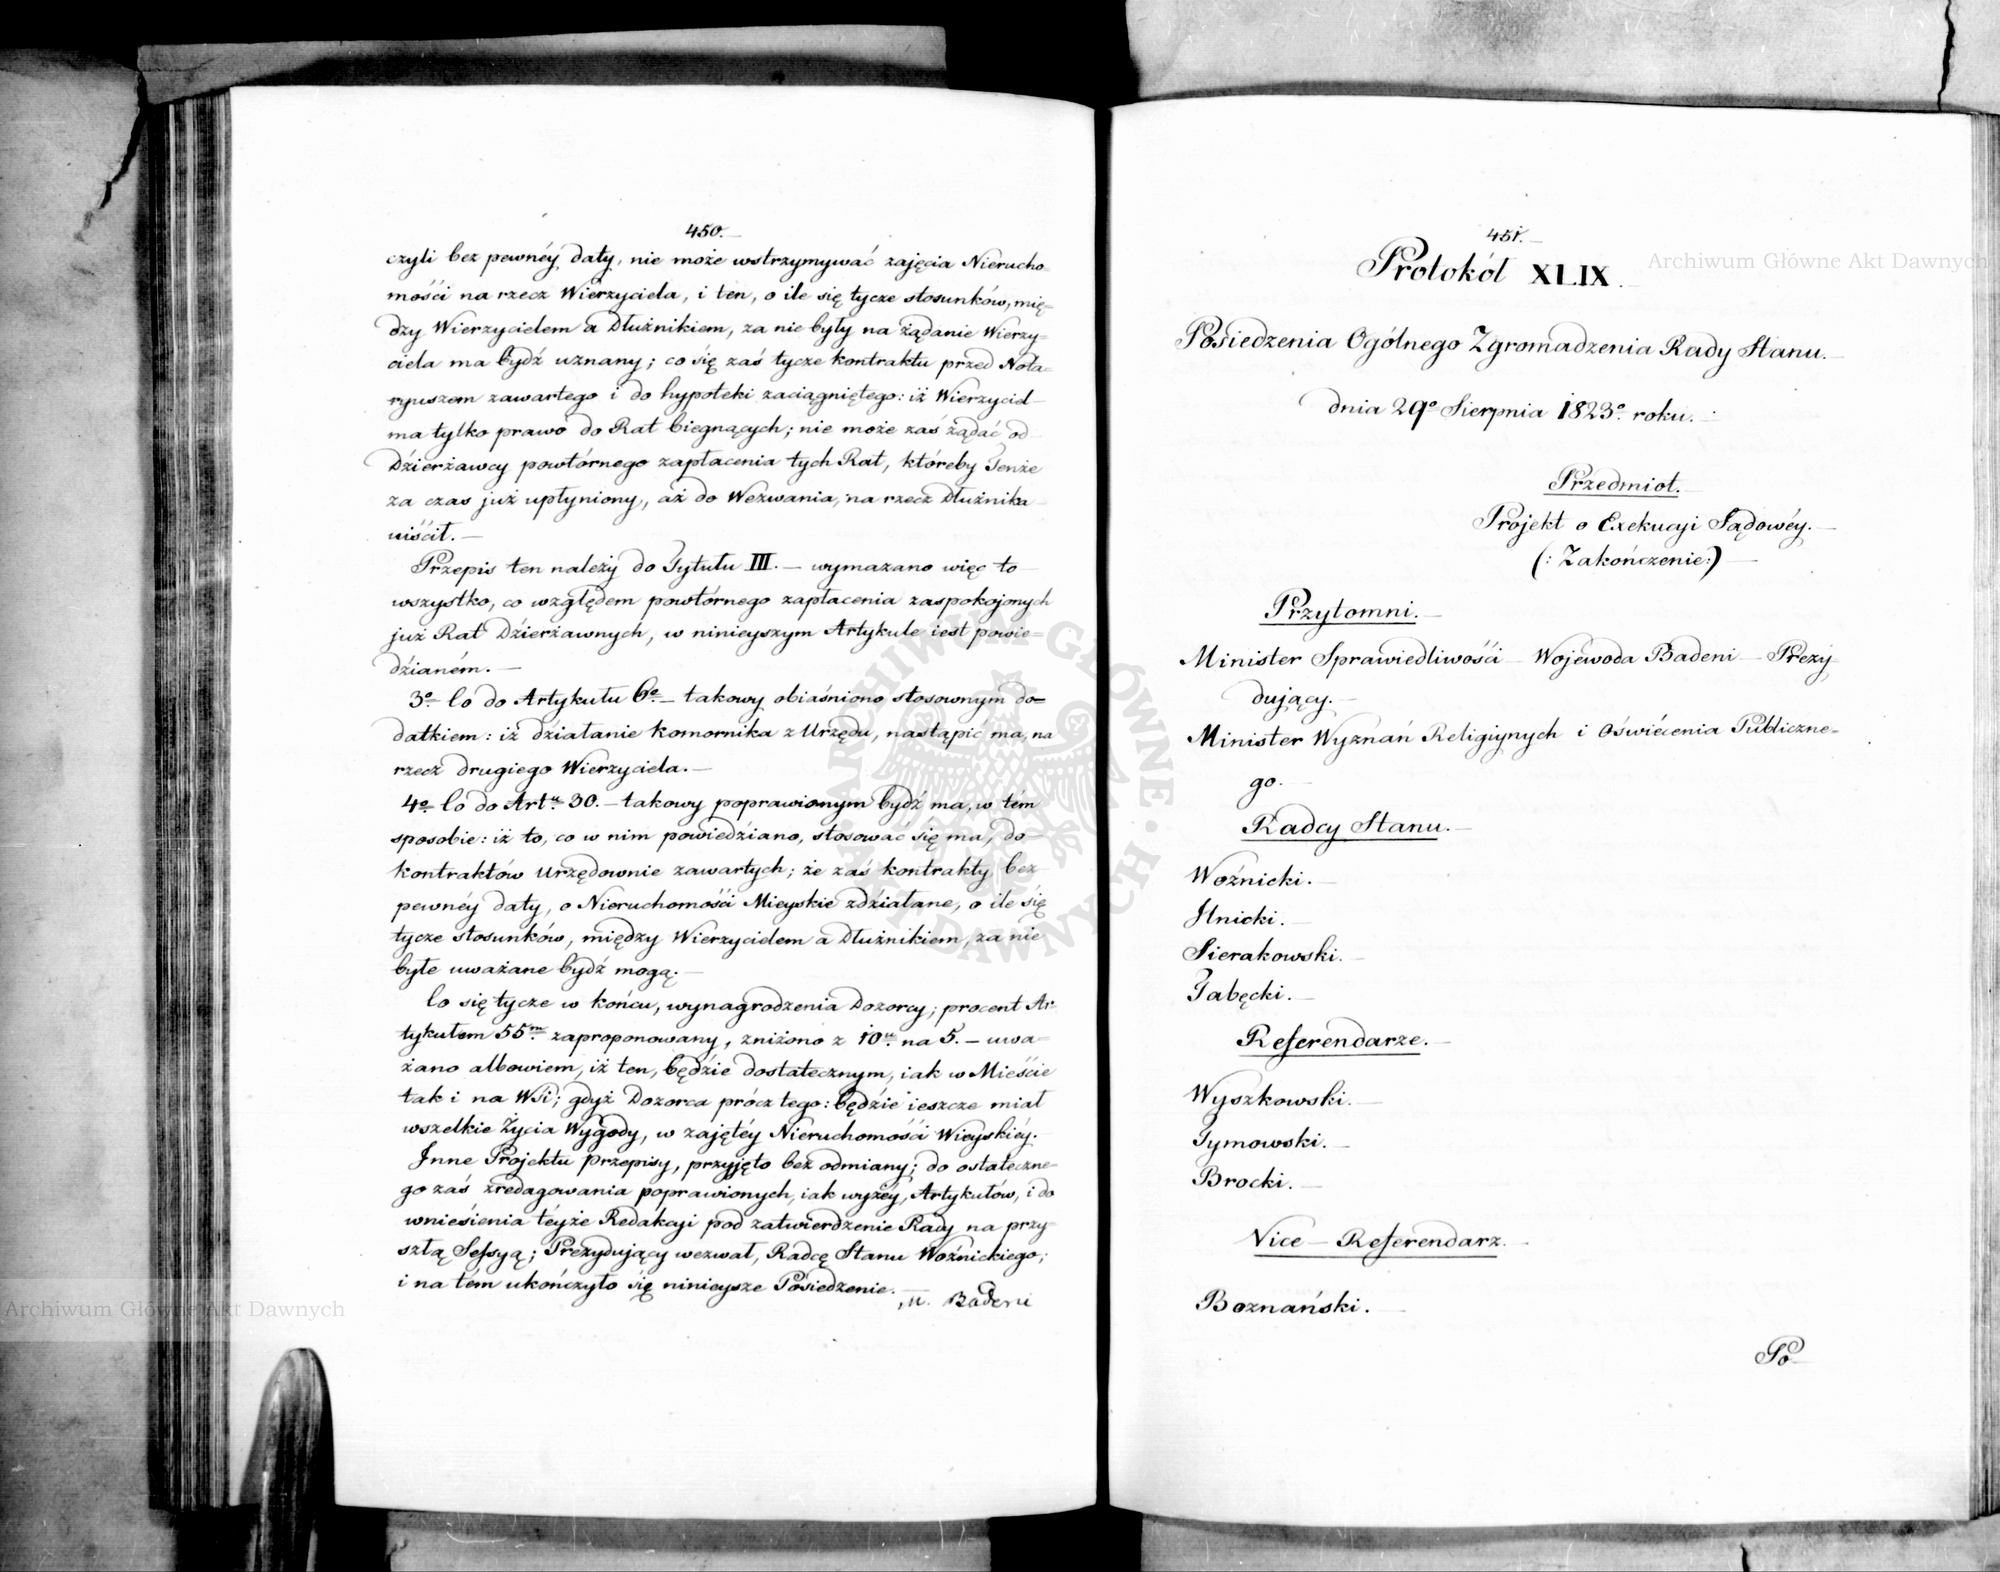 450.
czyli bez pewnéy daty, nie może wstrzymywać zajęcia Nierucho-
mości na rzecz Wierzyciela, i ten, o ile się tycze stosunków, mię-
dzy Wierzycielem a Dłużnikiem, za nie były na żądanie Wierzy-
ciela ma bydź uznany; co się zaś tycze kontraktu przed Nota-
ryuszem zawartego i do hypoteki zaciągniętego: iż Wierzyciel
ma tylko prawo do Rat biegnących; nie może zaś żądać od
Dzierżawcy powtórnego zapłacenia tych Rat, któreby Tenże
za czas już upłyniony, aż do Wezwania, na rzecz Dłużnika
uiścił.—
Przepis ten należy do Tytułu III.— wymazano więc to
wszystko, co względem powtórnego zapłacenia zaspokojonych
już Rat Dzierżawnych, w ninieyszym Artykule iest powie-
dzianém.—
3o Co do Artykułu 6o— takowy obiaśniono stosownym do-
datkiem: iż działanie komornika z Urzędu, nastąpić ma, na
rzecz drugiego Wierzyciela.—
4o Co do Artu 30.— takowy poprawionym bydź ma, w tém
sposobie: iż to, co w nim powiedziano, stosować się ma, do
kontraktów Urzędownie zawartych; że zaś kontrakty bez
pewnéy daty, o Nieruchomości Mieyskie zdziałane, o ile się
tycze stosunków, między Wierzycielem a Dłużnikiem, za nie
byłe uważane bydź mogą.—
Co się tycze w końcu, wynagrodzenia Dozorcy; procent Ar-
tykułem 55m zaproponowany, zniżono z 10u na 5.— uwa-
żano albowiem, iż ten, będzie dostatecznym, iak w Mieście
tak i na Wsi; gdyż Dozorca prócz tego: będzie ieszcze miał
wszelkie Życia Wygody, w zajętéy Nieruchomości Wieyskiéy.
Inne Projektu Przepisy, przyjęto bez odmiany; do ostateczne-
go zaś zredagowania poprawionych, iak wyżéy, Artykułów, i do
wniesienia téyże Redakcyi pod zatwierdzenie Rady na przy-
szłą Sessyą; Prezydujący wezwał, Radcę Stanu Woźnickiego;
i na tém ukończyło się ninieysze Posiedzenie.—
M. Badeni
451.
Protokół XLIX.
Posiedzenia Ogólnego Zgromadzenia Rady Stanu.—
dnia 29o Sierpnia 1823o roku.—
Przedmiot.
Projekt o Exekucyi Sądowéy.—
(: Zakończenie:)
Przytomni.—
Minister Sprawiedliwości — Wojewoda Badeni — Prezy-
dujący.—
Minister Wyznań Religiynych i Oświécenia Publiczne-
go.—
Radcy Stanu.—
Woźnicki.—
Ilnicki.—
Sierakowski.—
Tabęcki.—
Referendarze.—
Wyszkowski.—
Tymowski.—
Brocki.—
Vice — Referendarz.
Boznański.—
Po-
Archiwum Główne Akt Dawnych
Archiwum Główne Akt Dawnych
ARCHIWUM GŁÓWNE AKT DAWNYCH